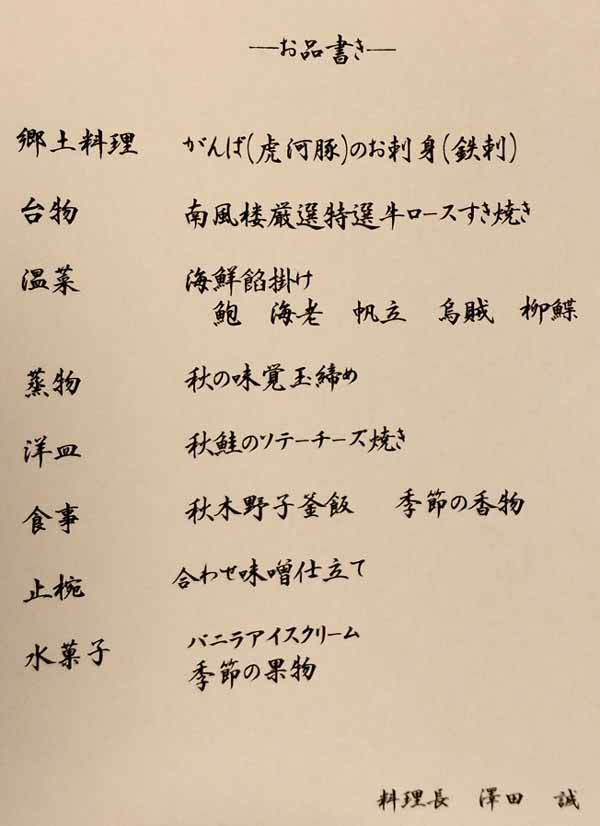 お品書き
郷土料理 がんば(虎河豚)のお刺身(鉄刺)
台物 南風楼厳選特選牛ロースすき焼き
温菜 海鮮餡掛け
鮑 海老 帆立 烏賊 柳鰈
蒸物 秋の味覚玉締め
洋皿 秋鮭のソテーチーズ焼き
食事 秋木野子釜飯 季節の香物
止椀 合わせ味噌仕立て
水菓子 バニラアイスクリーム
季節の果物
料理長 澤田 誠